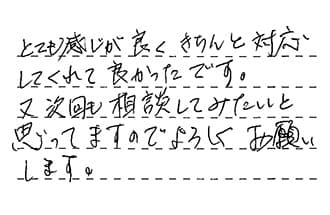 とても感じが良く きちんと対応
してくれて良かったです。
又次回も相談してみたいと
思ってますのでよろしくお願い
します。